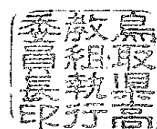 鳥取県高
教組執行
委員長印